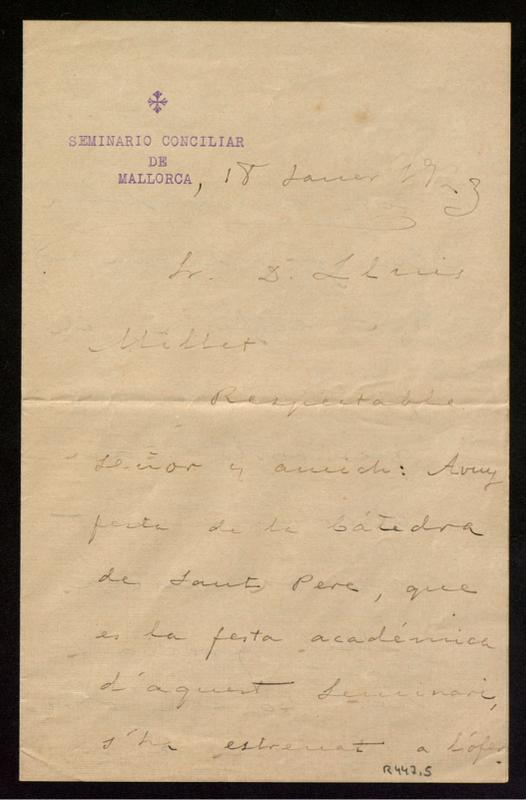 SEMINARIO CONCILIAR
DE
MALLORCA, 18 Janer 1923
Sr. D. Lluis
Millet
Respectable
señor y amich: Avuy
festa de la Cátedra
de Sant Pere, que
es la festa académica
d'aquest Seminari,
s'ha estrenat a l'ofer
R442.5